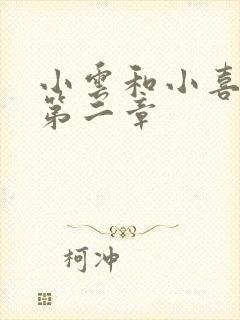 小雲和小喜
第二章
柯冲